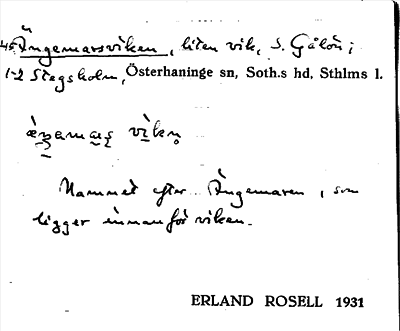 45 Ängemarsviken, liten vik, S. Gålön;
1-2 Stegsholm, Österhaninge sn, Soth.s hd, Sthlms l.
vìkn̥
Namnet efter Ängemaren, som
ligger innanför viken.
ERLAND ROSELL 1931